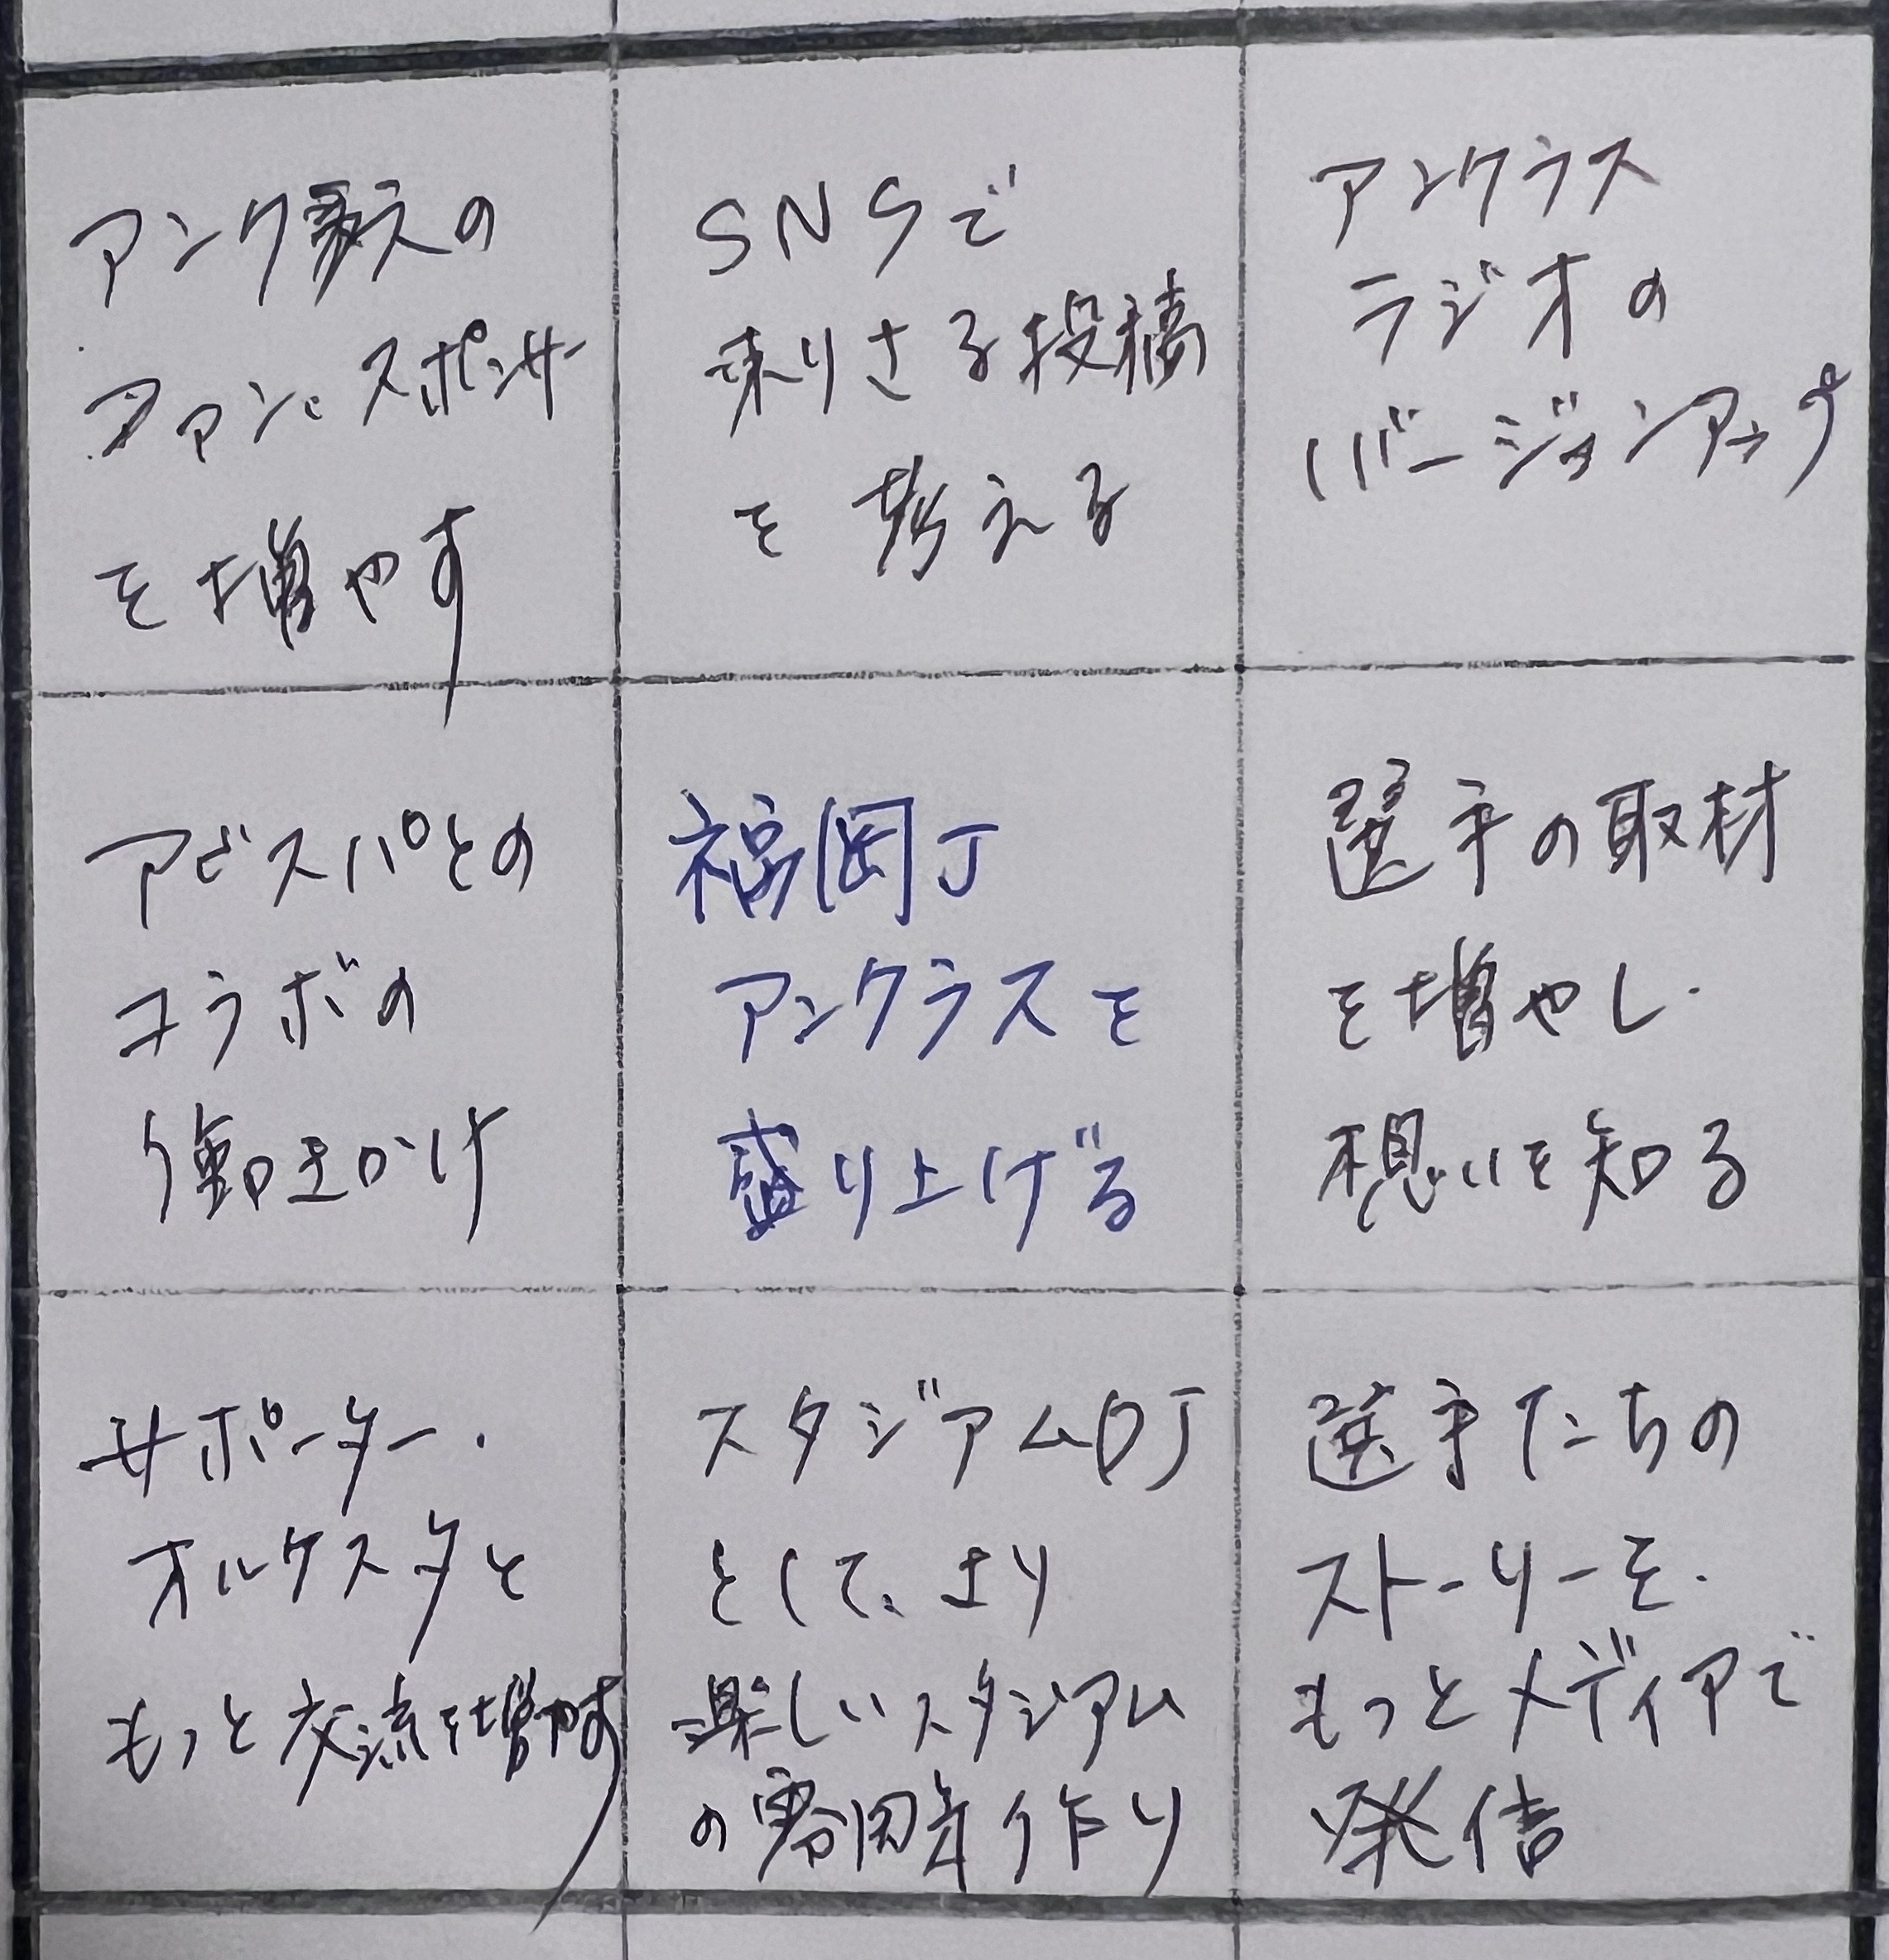 アンクラスの
ファン、スポンサー
を増やす
SNSで
刺さる投稿
を考える
アンクラス
ラジオの
バージョンアップ
アビスパとの
コラボの
働きかけ
福岡J
アンクラスを
盛り上げる
選手の取材
を増やし、
想いを知る
サポーター・
オルケスタと
もっと交流を増やす
スタジアムDJ
として、より
楽しいスタジアム
の雰囲気作り
選手たちの
ストーリーを、
もっとメディアで
発信